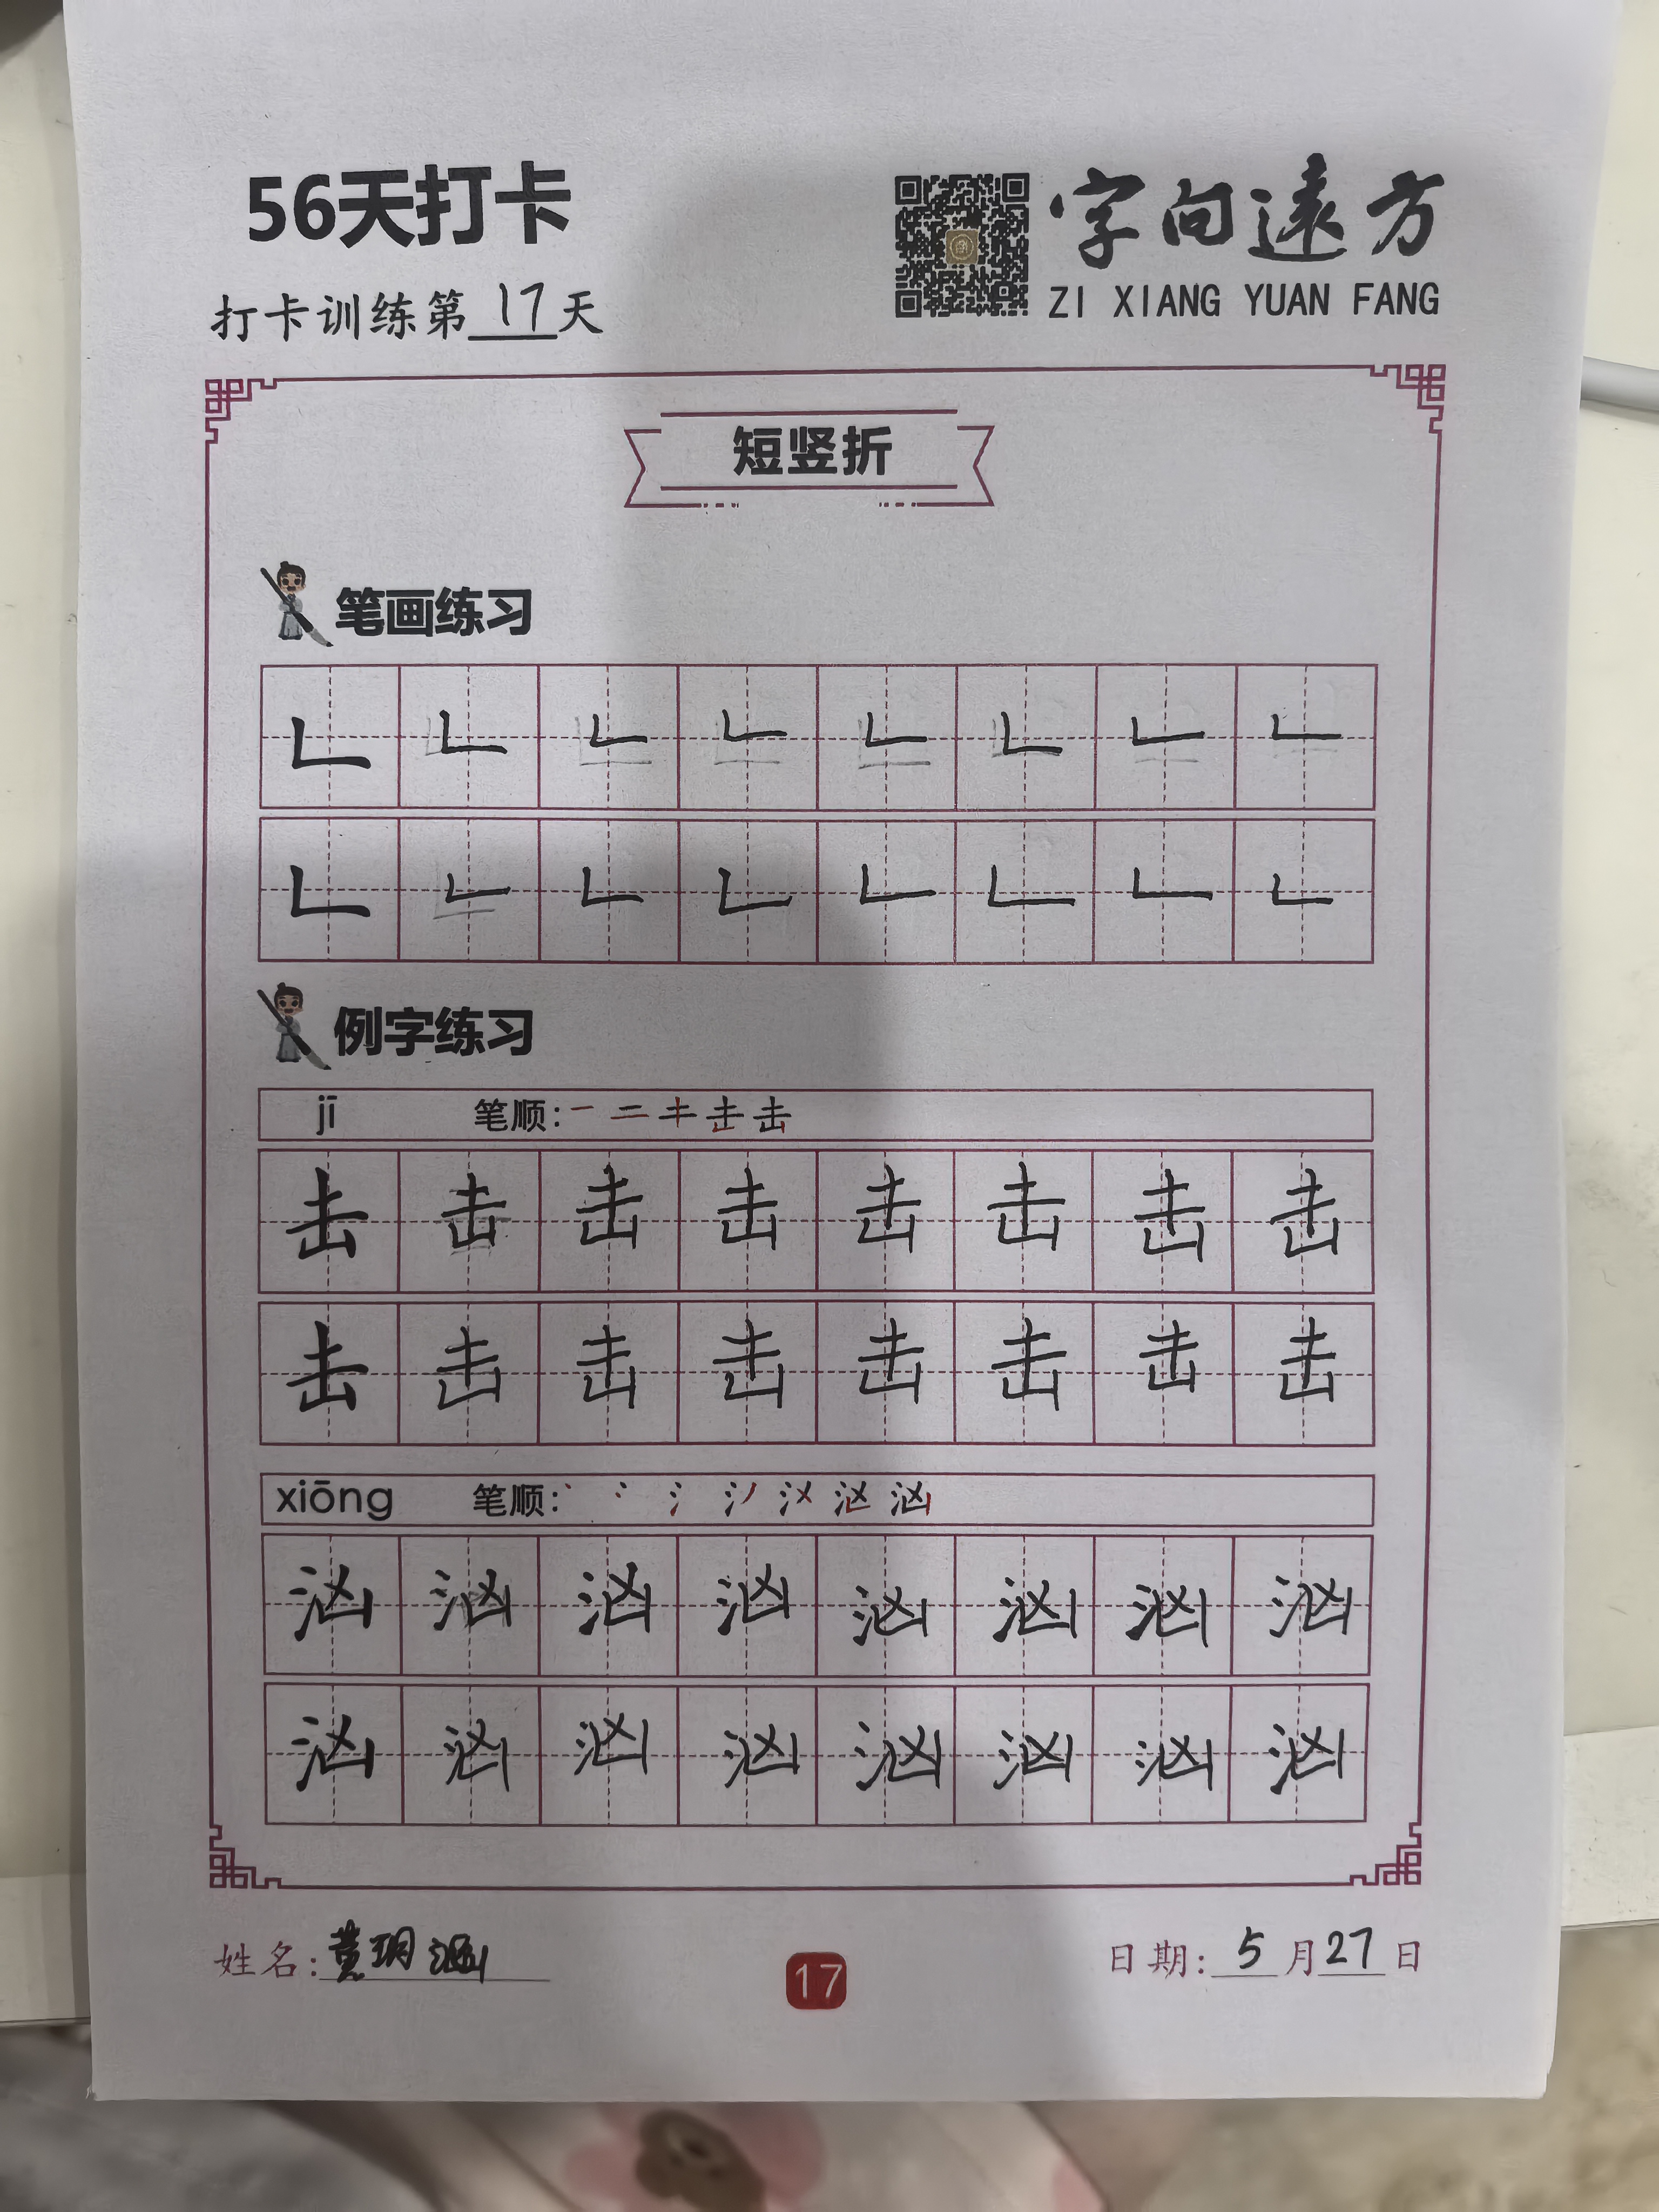 56天打卡
字向遠方
打卡训练第17天
ZI XIANG YUAN FANG
短竖折
笔画练习
𠃊 𠃊 𠃊 𠃊 𠃊 𠃊 𠃊 𠃊
𠃊 𠃊 𠃊 𠃊 𠃊 𠃊 𠃊 𠃊
例字练习
jī 笔顺:
击 击 击 击 击 击 击 击
击 击 击 击 击 击 击 击
xiōng 笔顺:
汹 汹 汹 汹 汹 汹 汹 汹
汹 汹 汹 汹 汹 汹 汹 汹
姓名:黄玥涵 17 日期:5月27日